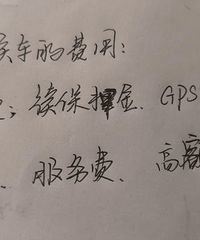 车的费用:
;续保押金、GPS
服务费、高额